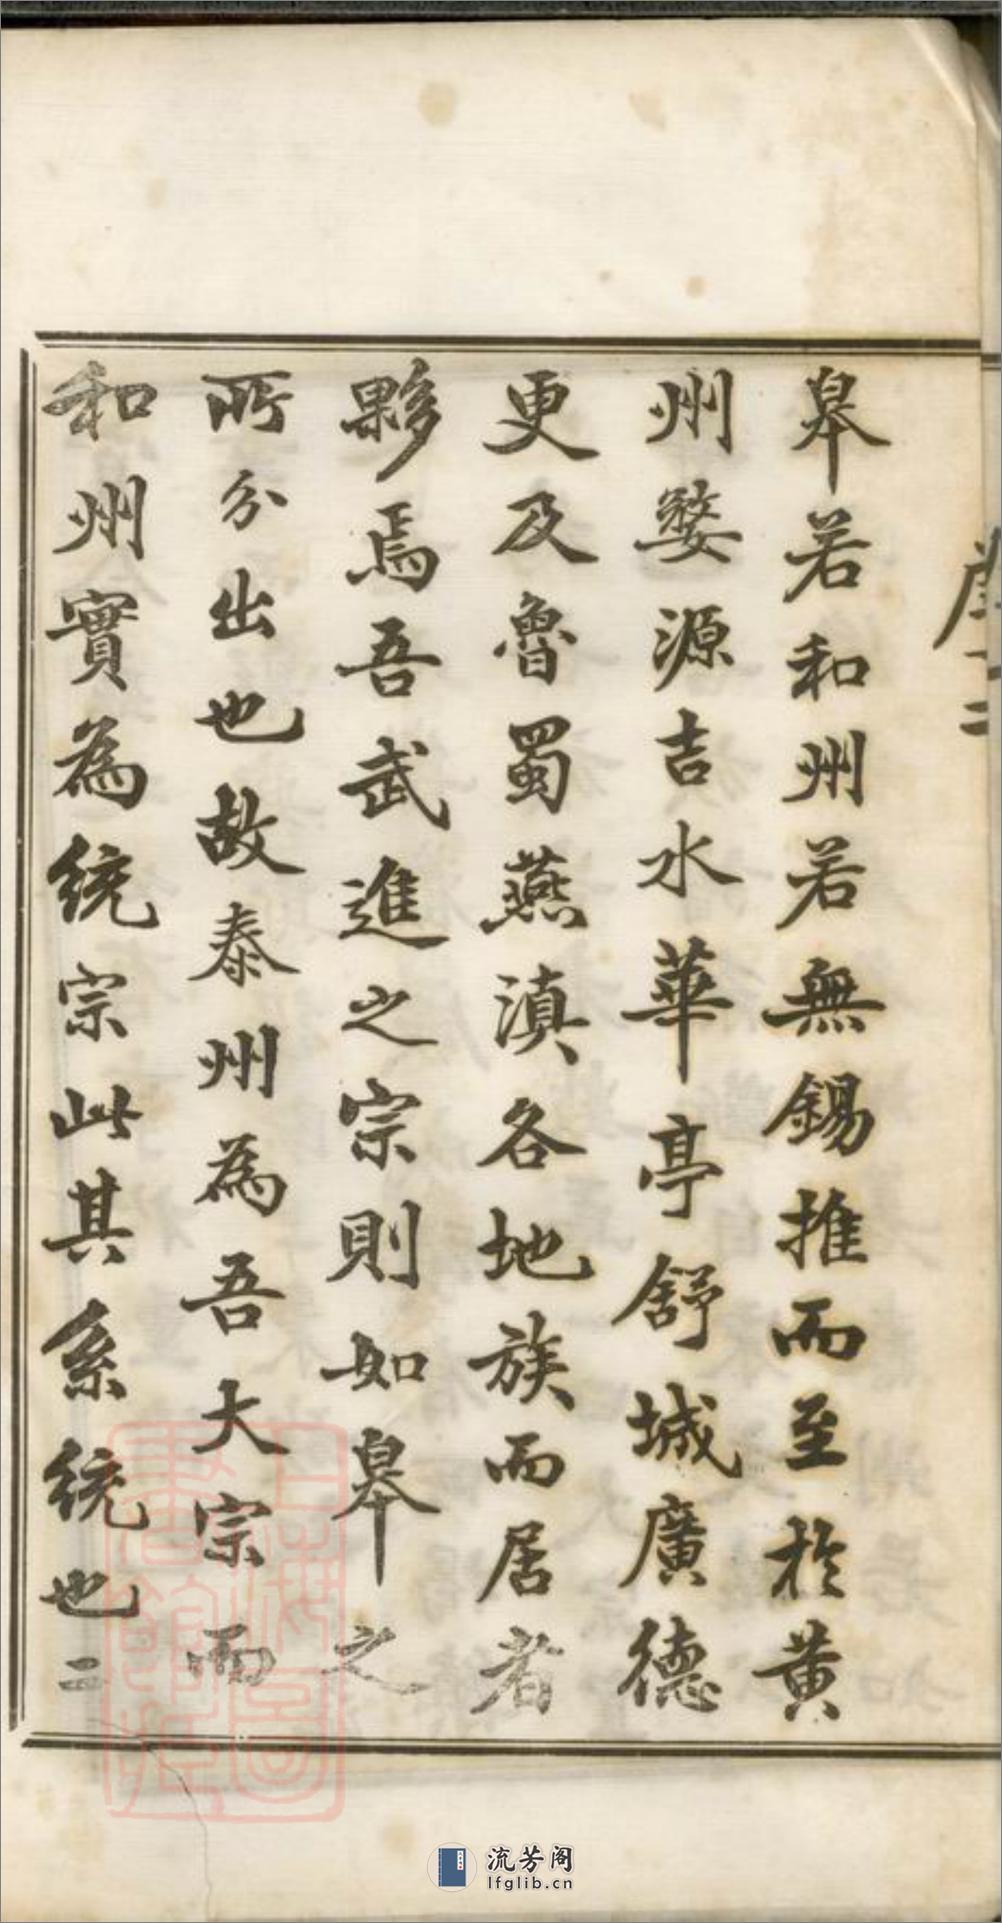 皋若和州若無錫推而至於黄
州婺源吉水華亭舒城廣德
更及魯蜀燕滇各地族而居者
夥焉吾武進之宗則如皋之
所分出也故泰州為吾大宗而
和州實為統宗此其系統也二
流芳阁
lfglib.cn